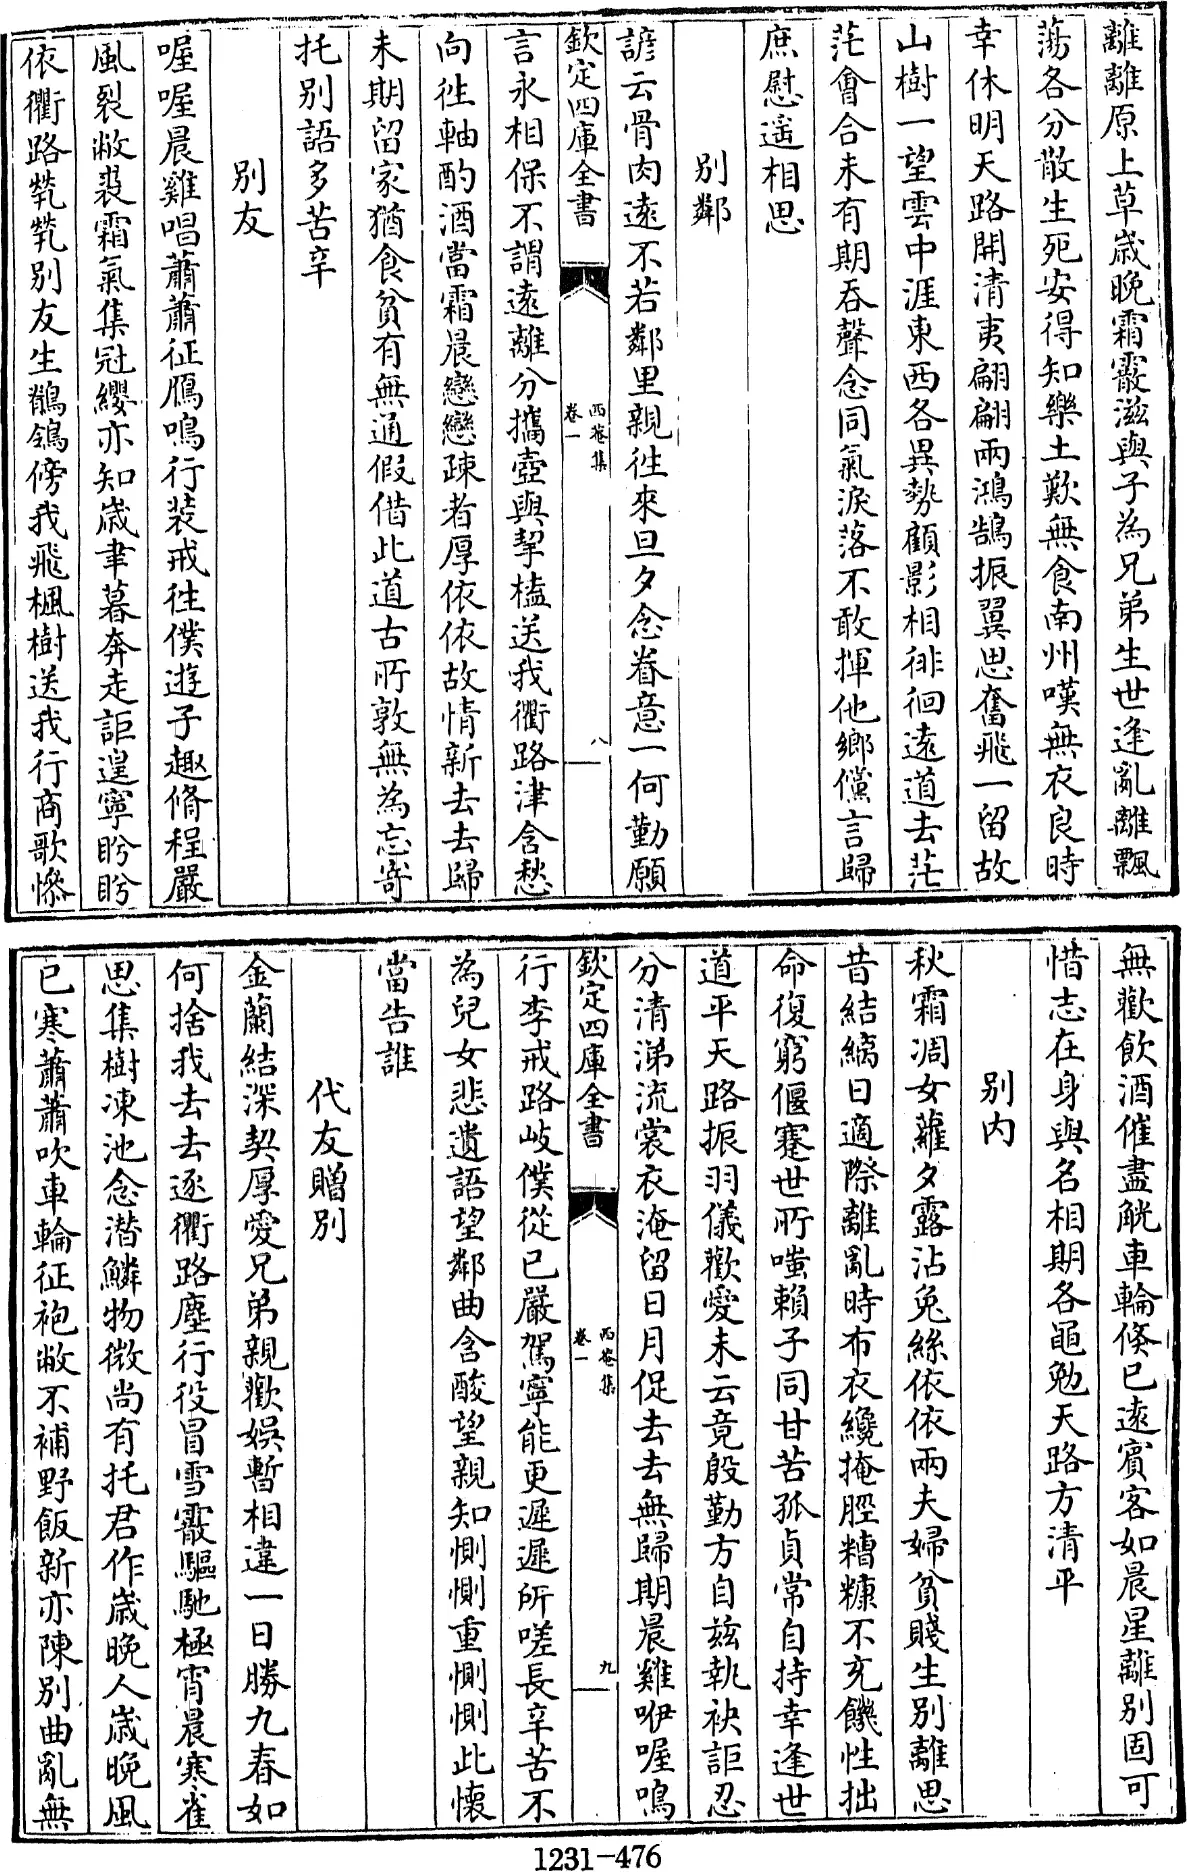 離離原上草歳晩霜霰滋與子為兄弟生世逢亂離飄
蕩各分散生死安得知樂土歎無食南州嘆無衣良時
幸休明天路開清夷翩翩兩鴻鵠振翼思奮飛一留故
山樹一望雲中涯東西各異勢顧影相徘徊逺道去茫
茫㑹合未有期吞聲念同氣淚落不敢揮他鄉儻言歸
庶慰遥相思
別鄰
諺云骨肉逺不若鄰里親徃來旦夕念眷意一何勤願
欽定四庫全書
西菴集
卷一
八
言永相保不謂逺離分攜壺與挈榼送我衢路津含愁
向徃軸酌酒當霜晨戀戀疎者厚依依故情新去去歸
未期留家猶食貧有無通假借此道古所敦無為忘寄
托別語多苦辛
別友
喔喔晨雞唱蕭蕭征鴈鳴行装戒徃僕遊子趣脩程嚴
風裂敝裘霜氣集冠纓亦知歳聿暮奔走詎遑寧盻盻
依衢路煢煢別友生鶺鴒傍我飛楓樹送我行商歌慘
無歡飲酒催盡觥車輪倐已逺賓客如晨星離別固可
惜志在身與名相期各黽勉天路方清平
別内
秋霜凋女蘿夕露沾兔絲依依兩夫婦貧賤生別離思
昔結縭日適際離亂時布衣纔掩脛糟糠不充饑性拙
命復窮偃蹇世所嗤賴子同甘苦孤貞常自持幸逢世
道平天路振羽儀歡愛未云竟殷勤方自兹執袂詎忍
分清涕流裳衣淹留日月促去去無歸期晨雞咿喔鳴
欽定四庫全書
西菴集
卷一
九
行李戒路岐僕從已嚴駕寧能更遲遲所嗟長辛苦不
為兒女悲遺語望鄰曲含酸望親知惻惻重惻惻此懐
當告誰
代友贈別
金蘭結深契厚愛兄弟親歡娯暫相違一日勝九春如
何捨我去去逐衢路塵行役冒雪霰驅馳極宵晨寒雀
思集樹凍池念潛鱗物微尚有托君作歳晩人歳晩風
已寒蕭蕭吹車輪征袍敝不補野飯新亦陳別曲亂無
1231-476